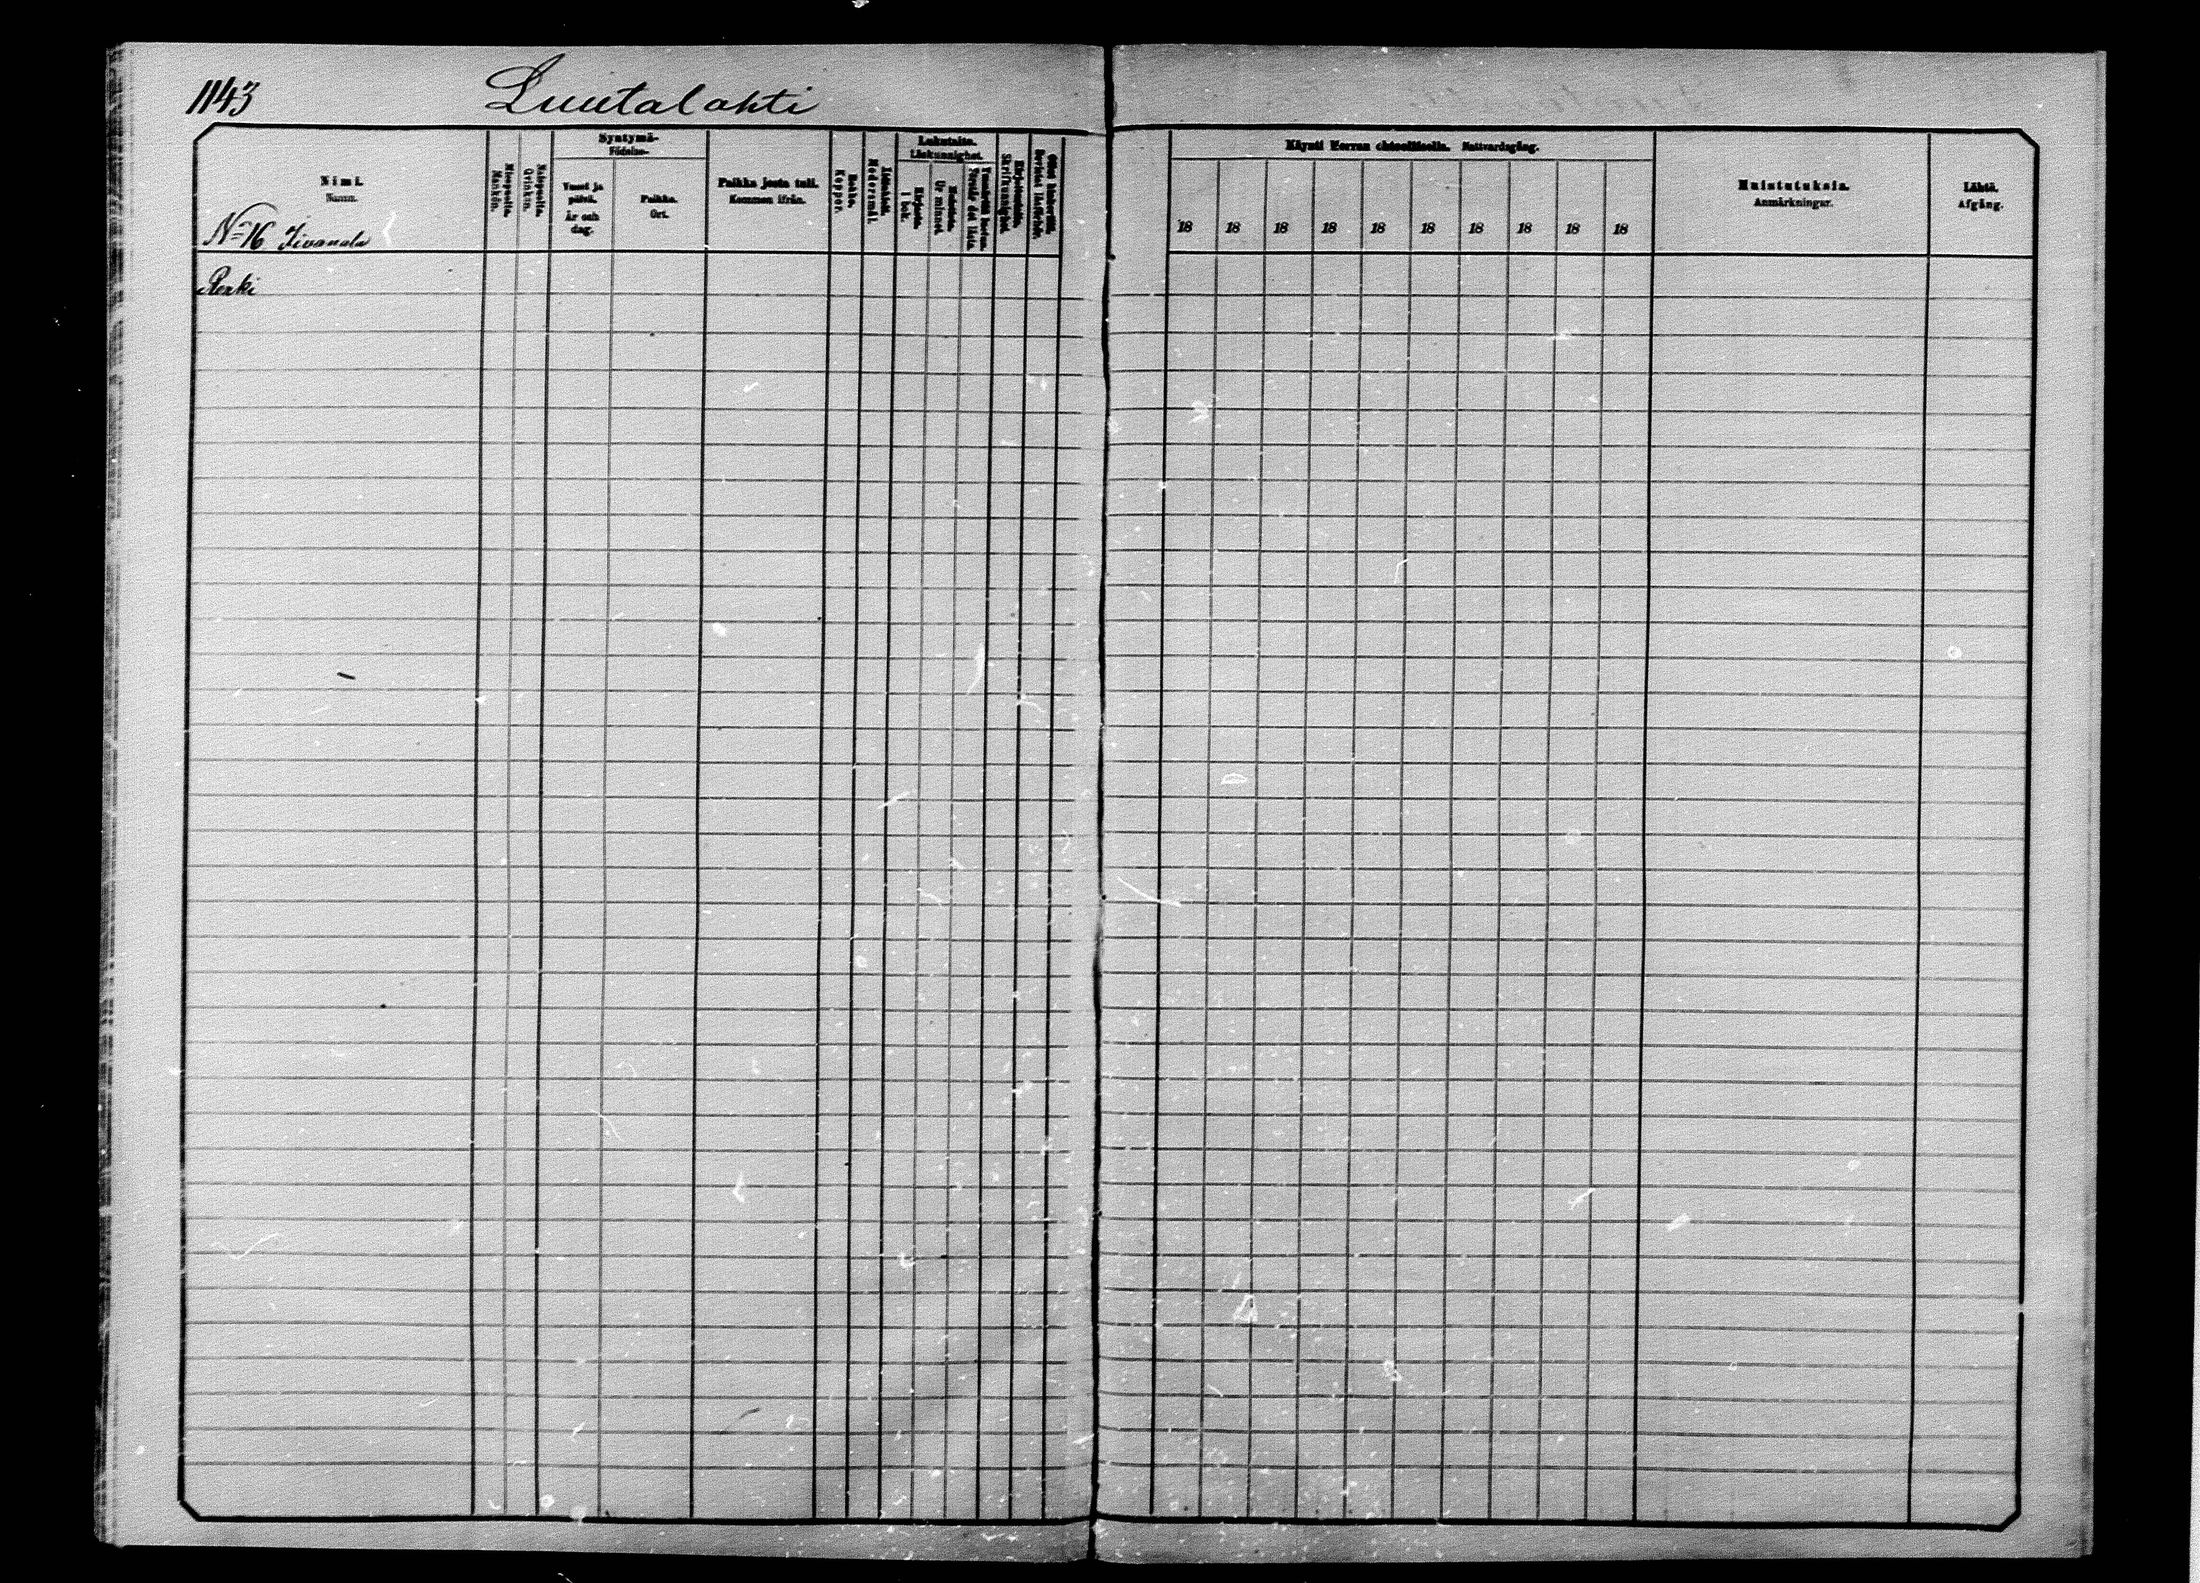 1143 Luutalahti
Nimi.
Namn.
Miespuolia.
Mankön.
Naispuolia.
Qvinkön.
Syntymä-
Födelse-
Vuosi ja
päivä.
År och
dag.
Paikka.
Ort.
Paikka josta tuli.
Kommen ifrån.
Rokko.
Koppor.
Äidinkieli.
Modersmål.
Lukutaito.
Läskunnighet.
Kirjasta.
I bok.
Ur minnet.
Ymmärtää luetun.
Förstår det lästa.
Kirjoitustaito.
Skrifkunnighet.
Bevistat läsförhör.
Käynti Herran ehtoollisella. Nattvardsgång.
18 18 18 18 18 18 18 18 18 18
Muistutuksia.
Anmärkningar.
Lähtö.
Afgång.
No 16 Iivanala
Renki